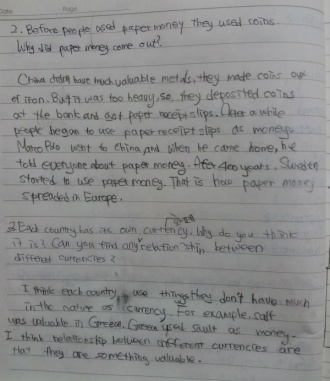 Date Page
2. Before people used paper money they used coins.
Why did paper money come out?
China didn't have much valuable metals, they made coins out
of iron. But it was too heavy, so, they deposited coins
at the bank and got paper receipt slips. After a while
people began to use paper receipt slips as money.
Marco Polo went to China, and when he came home, he
told everyone about paper money. After 400 years, Sweden
started to use paper money. That is how paper money
spreaded in Europe.
3. Each country has its own currency. Why do you think
it is? Can you find any relation ship between
different currencies?
I think each country use things they don't have much
in the nature as currency. For example, salt
was valuable in Greece. Greece used sault as money.
I think relationship between different currencies are
that they are something valuable.